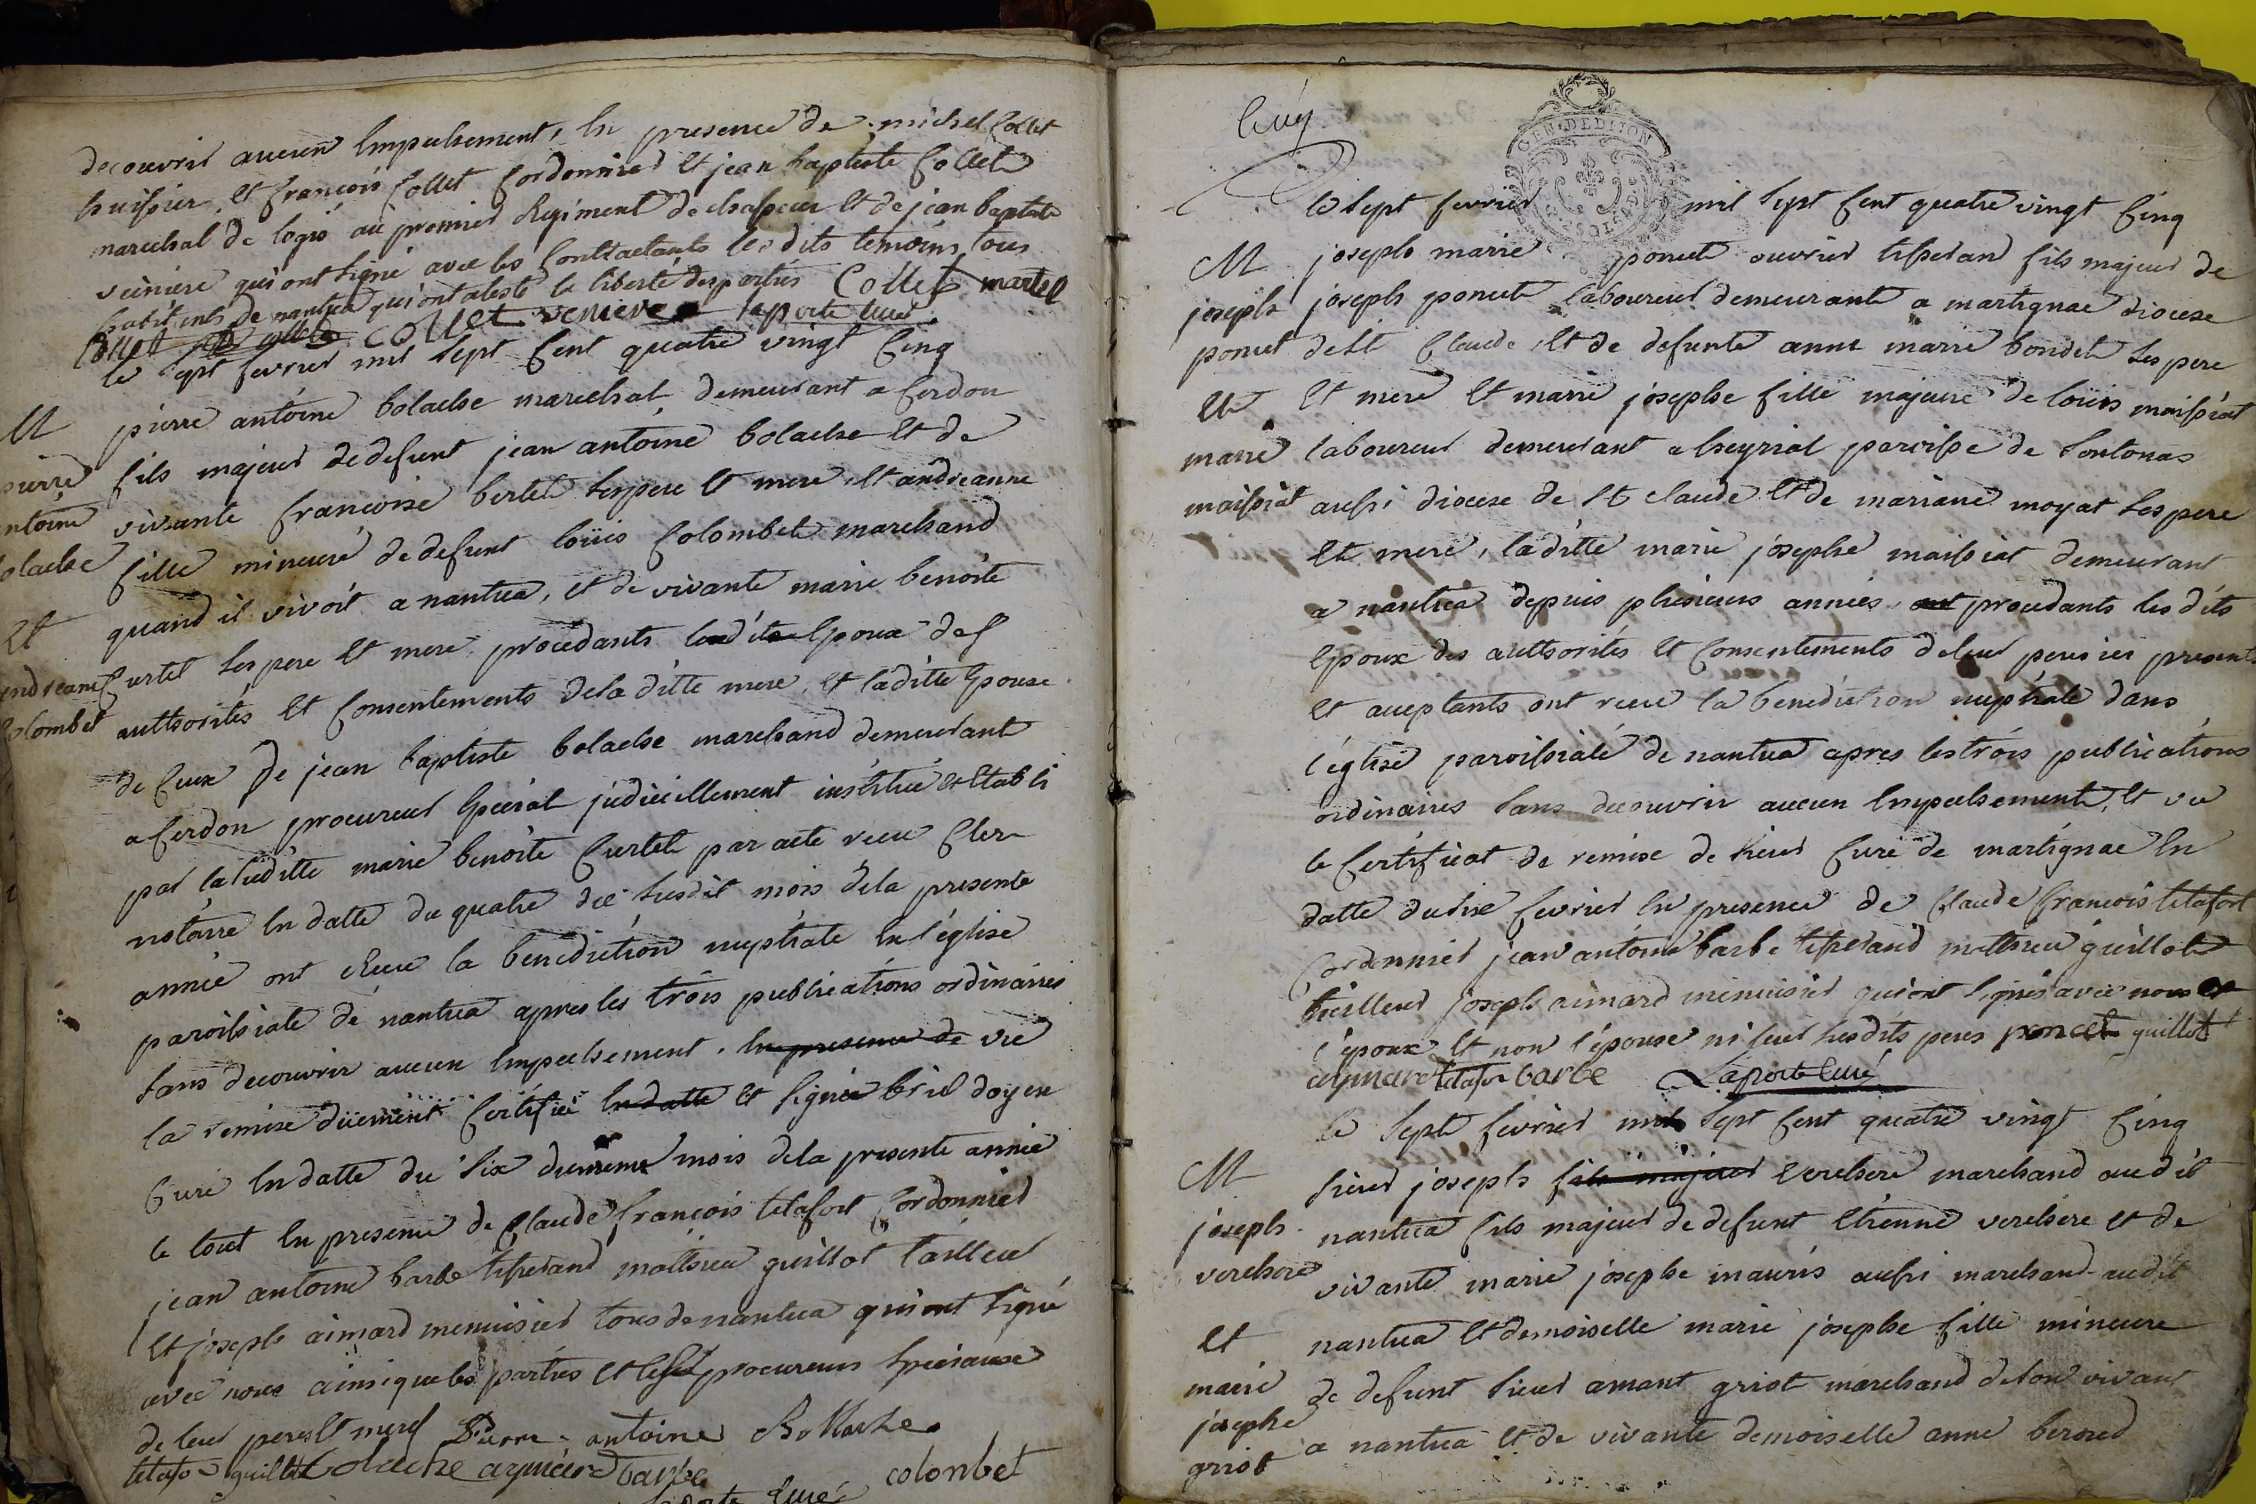 decouvrir aucun Empechement, En presence de michel Collet
huissier, Et françois Collet Cordonnier Et jean baptiste Collet
marechal de logis au premier Regiment de chasseur Et de jean baptiste
veiniere qui ont signé avec les Contractants les dits temoins tous
habitants de nantua qui ont atesté la liberté des parties Collet martel
Collet Collet veniere Laporte Curé
le sept fevrier mil sept Cent quatre vingt Cinq
M pierre antoine bolache marechal demeurant a Cerdon
pierre fils majeur de defunt jean antoine bolache Et de
antoine vivante françoise bertet ses pere Et mere, Et andreanne
bolache fille mineure de defunt loüis Colombet marchand
Et quand il vivoit a nantua, Et de vivante marie benoite
andreane Curtet ses pere Et mere procedants Epoux des
Colombet authorités Et Consentements de la ditte mere, Et la ditte Epouse
de Ceux de jean baptiste bolache marchand demeurant
a Cerdon procureur Special judiciellement institué Et Etabli
par la sudditte marie benoite Curtet par acte receu Cler
notaire En datte du quatre du susdit mois de la presente
année ont Receu la benediction nuptiale En l'église
paroissiale de nantua apres les trois publications ordinaires
sans decouvrir aucun Empechement. En presence de vu
la remise düement Certifiée En datte Et signée bril doyen
Curé En datte du six du mois de la presente année
le tout En presence de Claude françois tetafort Cordonnier
jean antoine barbe tisserand mathieu guillot tailleur
Et joseph aimard menuisier tous de nantua qui ont signé
avec nous ainsi que les parties Et procureurs speciaux
de leur peres Et meres Pierre antoine Bollache
tetafor guillot bolache aymard barbe colonbet
Curé
Cuy
GEN. DE DIJON
le sept fevrier mil sept Cent quatre vingt Cinq
M joseph marie poncet ouvrier tisserand fils majeur de
joseph joseph poncet laboureur demeurant a martignac diocese
poncet de St Claude, Et de defunte anne marie bondet ses pere
Et Et mere Et marie josephe fille majeure de loüis maissiat
marie laboureur demeurant a heyriat paroisse de Sontonas
maissiat aussi diocese de St Claude Et de mariane moyat ses pere
Et mere, la ditte marie josephe maissiat demeurant
a nantua depuis plusieurs années procedants les dits
Epoux des authorités Et Consentements de leur peres ici presents
Et aceptants ont receu la benediction nuptiale dans
l'église paroissiale de nantua apres les trois publications
ordinaires sans decouvrir aucun Empechement, Et vu
le Certificat de remise de sieur Curé de martignac En
datte du six fevrier En presence de Claude françois tetafort
Cordonnier jean antoine barbe tisserand mathieu guillot
tailleur joseph aimard menuisier qui ont signés avec nous Et
l'epoux Et non l'épouse ni leur susdits peres poncet guillot
aymard tetafor barbe Laporte Curé
le sept fevrier mil sept Cent quatre vingt Cinq
M sieur joseph fils majeur verchere marchand audit
joseph nantua fils majeur de defunt Etienne verchere Et de
verchere vivante marie josephe mauris aussi marchand audit
Et nantua Et demoiselle marie josephe fille mineure
marie de defunt sieur amant griot marchand de son vivant
josephe a nantua Et de vivante demoiselle anne beroud
griot